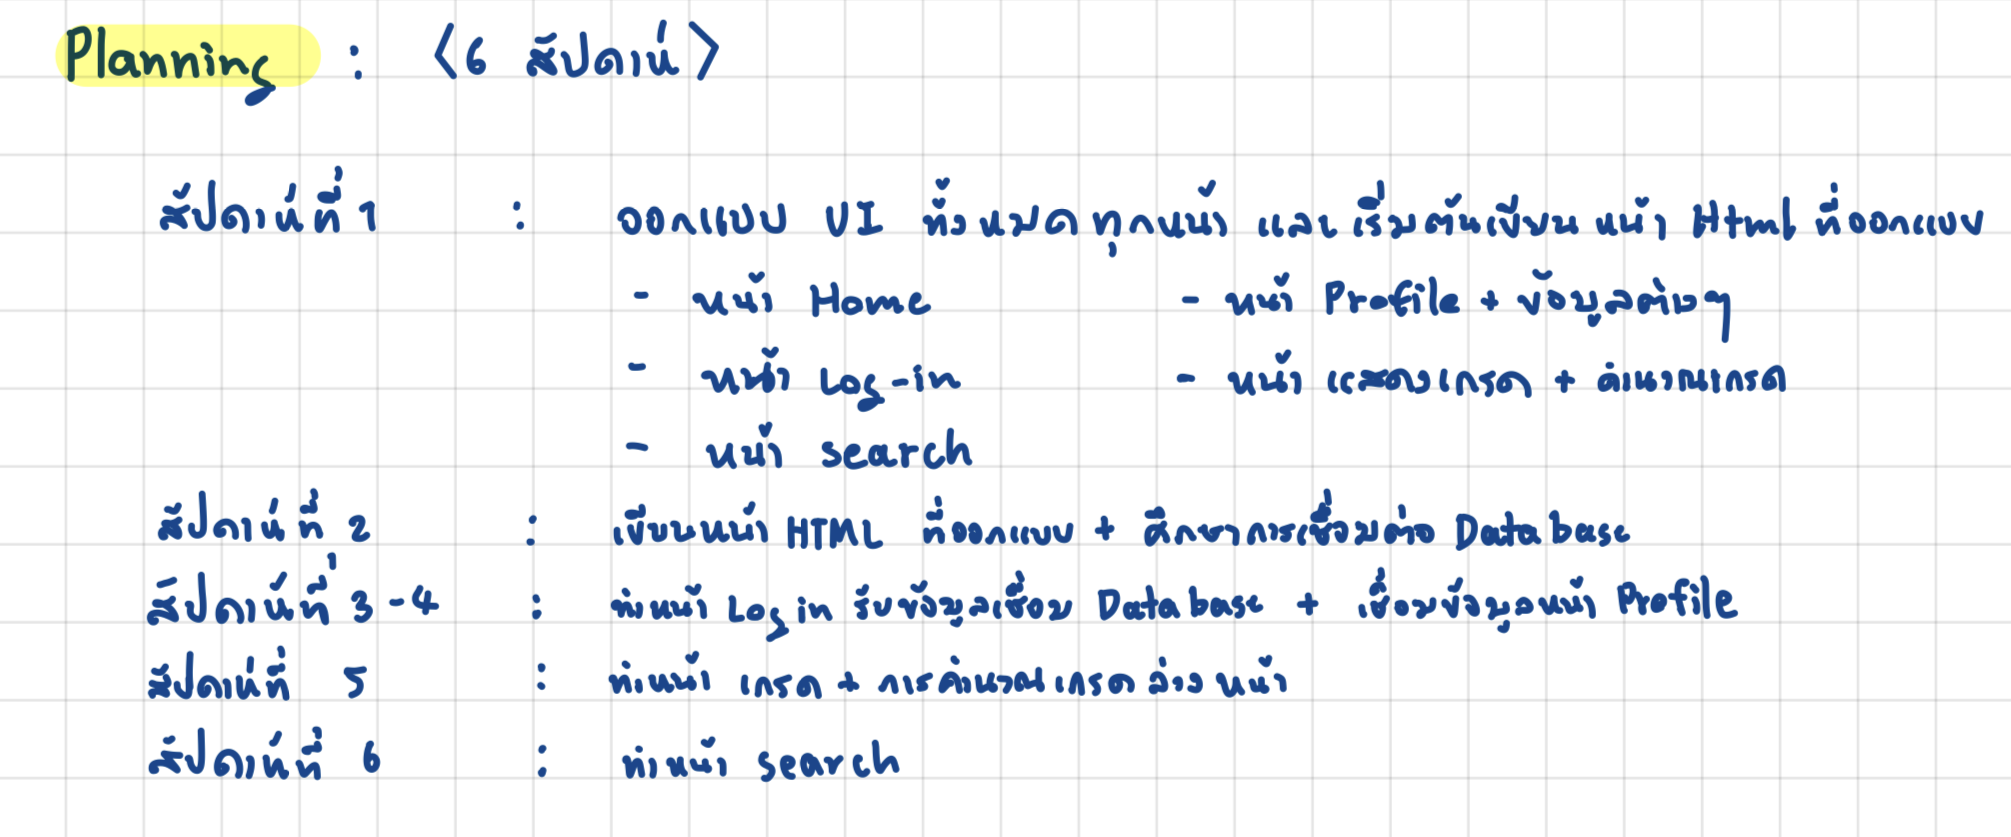 Planning : <6 สัปดาห์>
สัปดาห์ที่ 1 : ออกแบบ UI ทั้งหมดทุกหน้า และเริ่มต้นเขียน หน้า Html ที่ออกแบบ
- หน้า Home - หน้า Profile + ข้อมูลต่างๆ
- หน้า Log-in - หน้า แสดงเกรด + คำนวณเกรด
- หน้า search
สัปดาห์ที่ 2 : เขียนหน้า HTML ที่ออกแบบ + ศึกษาการเชื่อมต่อ Database
สัปดาห์ที่ 3-4 : ทำหน้า Log in รับข้อมูลเชื่อม Database + เชื่อมข้อมูลหน้า Profile
สัปดาห์ที่ 5 : ทำหน้า เกรด + การคำนวณเกรดล่วงหน้า
สัปดาห์ที่ 6 : ทำหน้า search